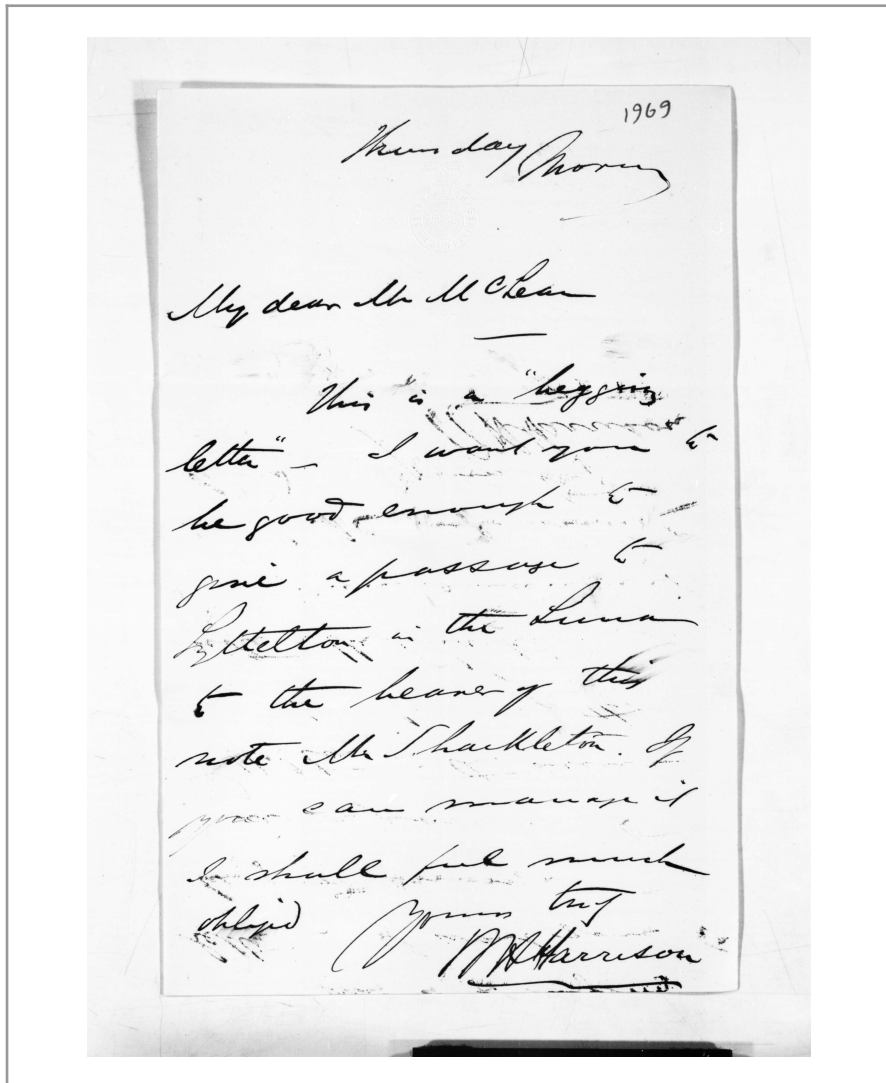 1969
Thursday Morng
My dear Mr McLean
This is a "begging
letter" - I want you to
be good enough to
give a passage to
Lyttelton in the Luna
to the bearer of this
note Mr Shackleton. If
you can manage it
I shall feel much
obliged Yours try
Harrison